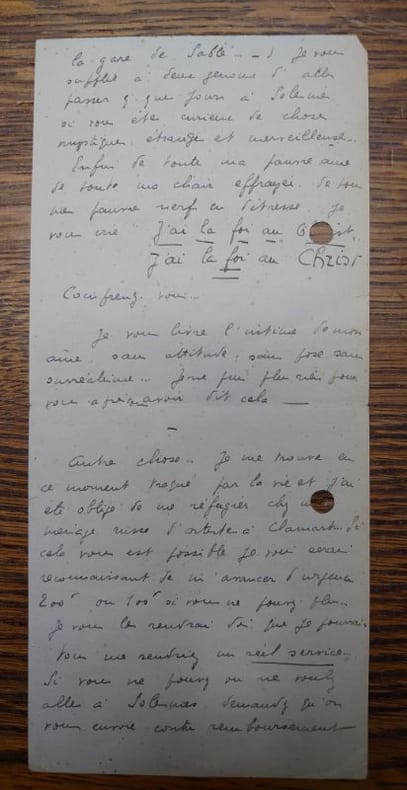 la gare de Sablé... — ) Je vous
supplie à deux genoux d'aller
passer qque jours à Solesmes
si vous ete curieuse de chose
mystique, étrange et merveilleuse...
Enfin de toute ma pauvre ame
de toute ma chair effrayée de tou
mes pauvre nerf en détresse je
vous crie J'ai la foi au C ist.
J'ai la foi au Christ
Comprenez vous...
Je vous livre l'intime de mon
âme, sans attitude, sans pose, sans
Je ne puis plus rien pour
vous après avoir dit cela —
—
Autre chose... Je me trouve en
ce moment traqué par la vie et j'ai
été obligé de me réfugier chez u
ménage russe d'artiste à Clamart. Si
cela vous est possible je vous serai
reconnaissant de m'avancer d'urgence
200f ou 100f si vous ne pouvez plus...
Je vous les rendrai dès que je pourrai,
Vous me rendriez un réel service...
Si vous ne pouvez ou ne voulez
aller à Solesmes demandez qu'on
vous envoie contre remboursement